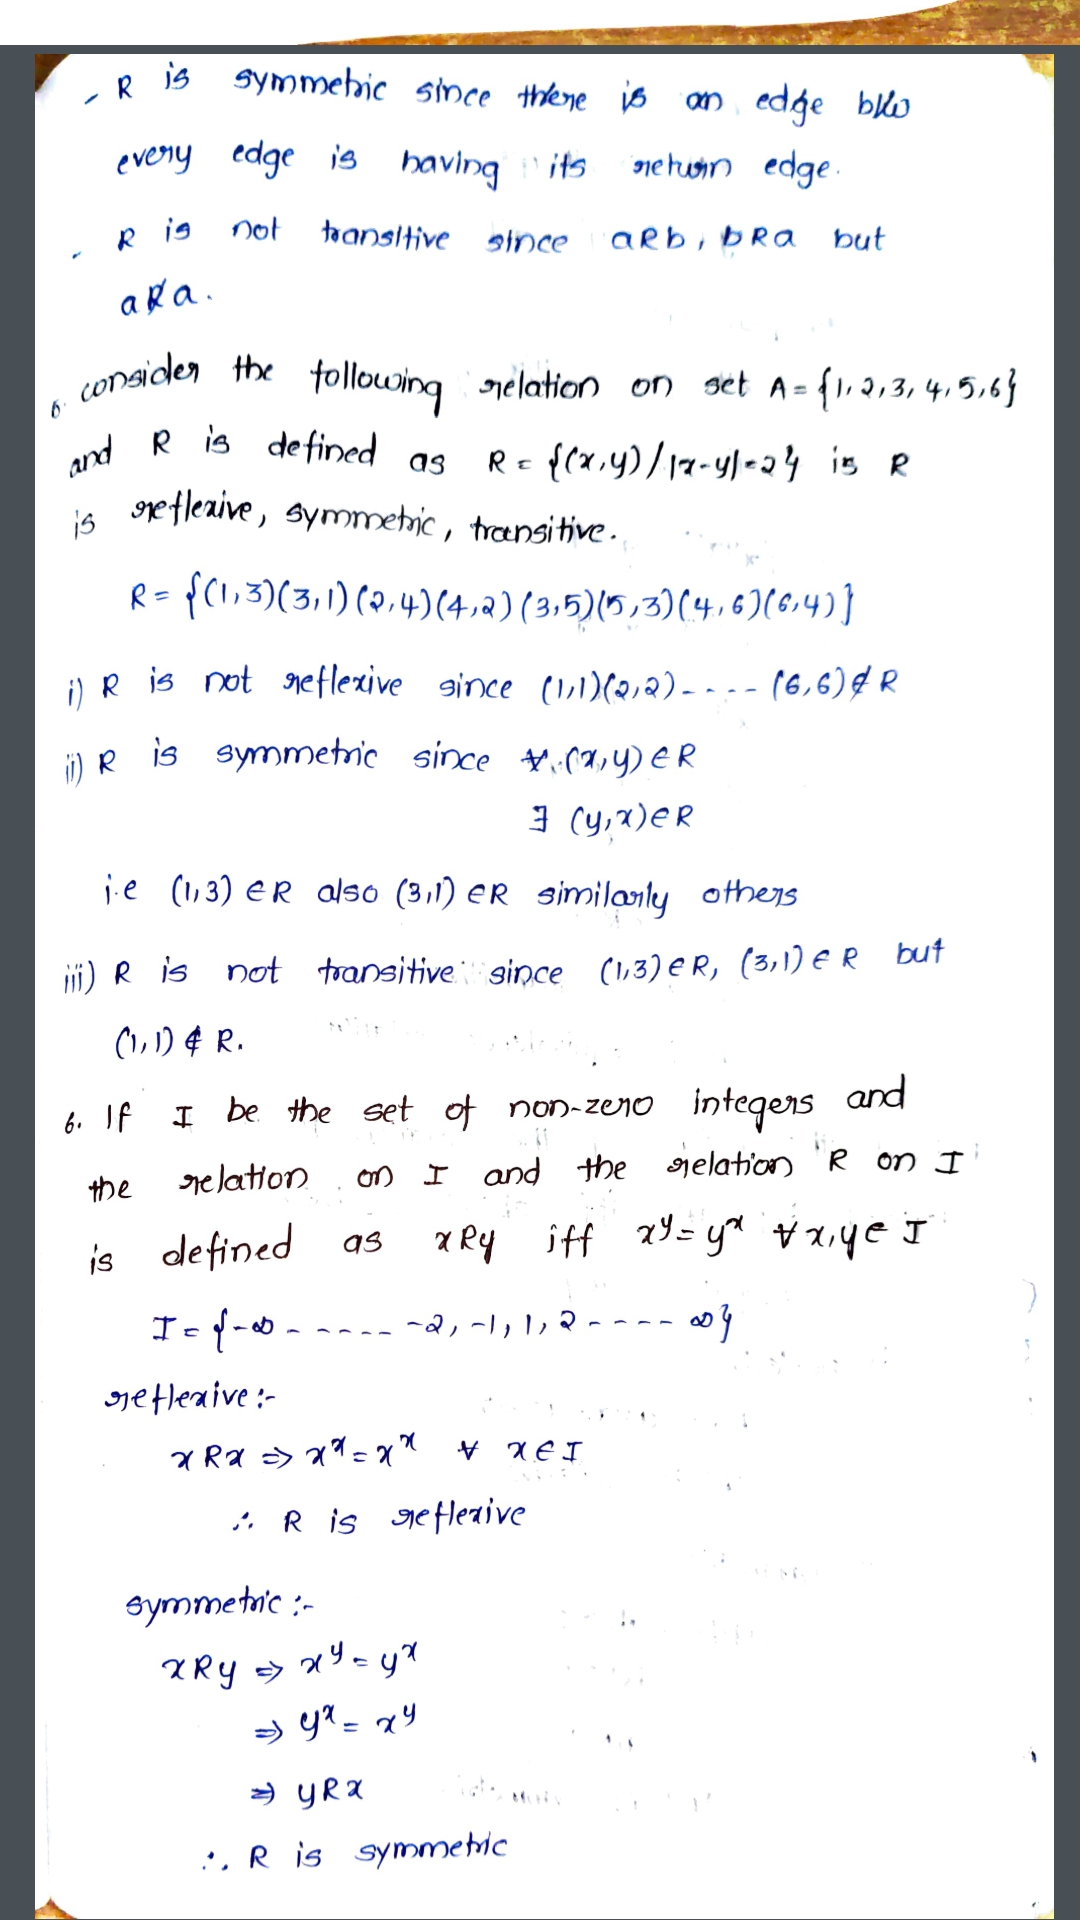 - R is symmetric since there is an edge b/w
every edge is having its return edge.
. R is not transitive since aRb, bRa but
aR̸a.
6. consider the following relation on set A = {1,2,3,4,5,6}
and R is defined as R = {(x,y)/|x-y|=2} is R
is reflexive, symmetric, transitive.
R = {(1,3)(3,1)(2,4)(4,2)(3,5)(5,3)(4,6)(6,4)}
i) R is not reflexive since (1,1)(2,2)----- (6,6)∉R
ii) R is symmetric since ∀ (x,y)∈R
∃ (y,x)∈R
i.e (1,3)∈R also (3,1)∈R similarly others
iii) R is not transitive since (1,3)∈R, (3,1)∈R but
(1,1)∉R.
6. If I be the set of non-zero integers and
the relation on I and the relation R on I
is defined as xRy iff x^y = y^x ∀ x,y∈I
I = {-∞ ------ -2, -1, 1, 2 ---- ∞}
reflexive :-
xRx ⇒ x^x = x^x ∀ x∈I
∴ R is reflexive
symmetric :-
xRy ⇒ x^y = y^x
⇒ y^x = x^y
⇒ yRx
∴ R is symmetric